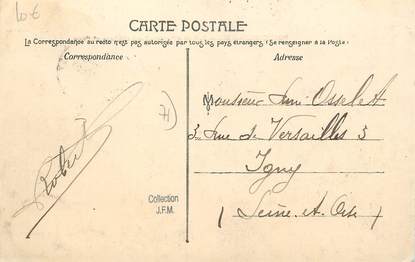 10€
CARTE POSTALE
La Correspondance au recto n'est pas autorisée par tous les pays étrangers (Se renseigner à la Poste)
Correspondance
Adresse
Monsieur Osselet
3 Rue de Versailles 3
Igny
(Seine-et-Oise)
Collection
J.F.M.